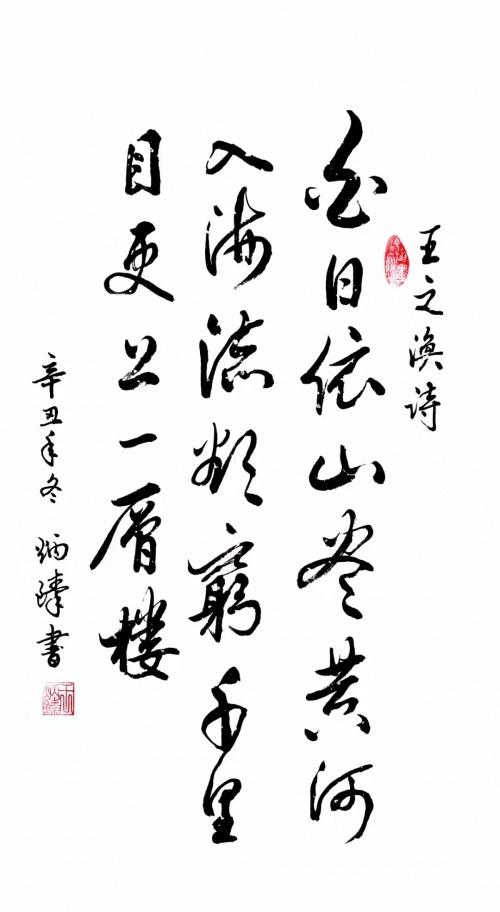 王之涣诗
白日依山尽黄河
入海流欲窮千里
目更上一層楼
辛丑年冬 炳 书